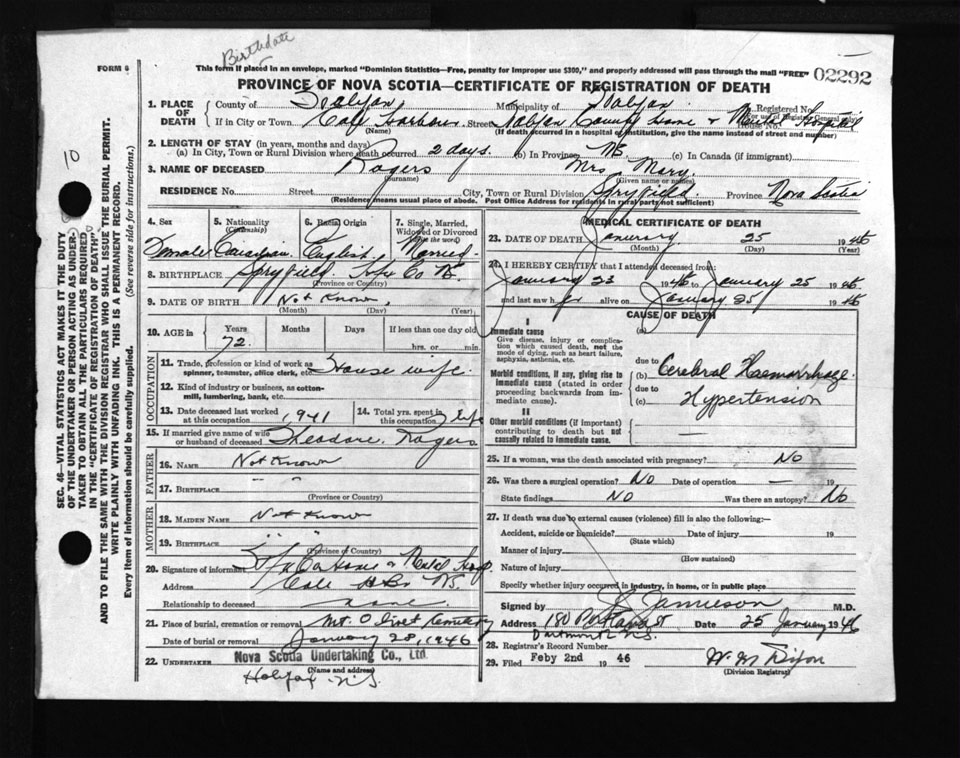 Birthdate
FORM 6
This form if placed in an envelope, marked "Dominion Statistics—Free, penalty for improper use $300," and properly addressed will pass through the mail "FREE"
02292
PROVINCE OF NOVA SCOTIA—CERTIFICATE OF REGISTRATION OF DEATH
1. PLACE OF DEATH
County of Halifax Municipality of Halifax Registered No.
If in City or Town Cole Harbour Street Halifax County Home & Mental Hospital House No.
(Name) (If death occurred in a hospital or institution, give the name instead of street and number)
2. LENGTH OF STAY (in years, months and days)
(a) In City, Town or Rural Division where death occurred 2 days. (b) In Province (c) In Canada (if immigrant)
3. NAME OF DECEASED Rogers Mrs Mary
(Surname) (Given name or names)
RESIDENCE No. Street City, Town or Rural Division Spryfield Province Nova Scotia
(Residence means usual place of abode. Post Office Address for residents in rural parts not sufficient)
4. Sex
Female
5. Nationality (Citizenship)
Canadian
6. Racial Origin
English
7. Single, Married, Widowed or Divorced (Write the word)
Married
8. BIRTHPLACE Spryfield Hfx Co
(Province or Country)
9. DATE OF BIRTH Not Known
(Month) (Day) (Year)
10. AGE in Years Months Days If less than one day old
72. hrs. or min.
OCCUPATION
11. Trade, profession or kind of work as spinner, teamster, office clerk, etc. House wife
12. Kind of industry or business, as cotton-mill, lumbering, bank, etc.
13. Date deceased last worked at this occupation 1941 14. Total yrs. spent in this occupation Life
15. If married give name of wife or husband of deceased Theodore Rogers
FATHER
16. NAME Not Known
17. BIRTHPLACE " "
(Province or Country)
MOTHER
18. MAIDEN NAME Not Know
19. BIRTHPLACE " "
(Province or Country)
20. Signature of informant Hfx Co Home & Mental Hosp
Address Cole Hbr NS.
Relationship to deceased none.
21. Place of burial, cremation or removal Mt. Olivet Cemetery
Date of burial or removal January 28, 1946
22. UNDERTAKER Nova Scotia Undertaking Co., Ltd.
(Name and address)
Halifax N.S.
MEDICAL CERTIFICATE OF DEATH
23. DATE OF DEATH January 25 1946
(Month) (Day) (Year)
24. I HEREBY CERTIFY that I attended deceased from:
January 23 1946 to January 25 1946.
and last saw her alive on January 25 1946
CAUSE OF DEATH
I
Immediate cause (a)
Give disease, injury or complication which caused death, not the mode of dying, such as heart failure, asphyxia, asthenia, etc.
due to
Morbid conditions, if any, giving rise to immediate cause (stated in order proceeding backwards from immediate cause).
(b) Cerebral Haemorrhage
due to
(c) Hypertension
II
Other morbid conditions (if important) contributing to death but not causally related to immediate cause. —
25. If a woman, was the death associated with pregnancy? No
26. Was there a surgical operation? No Date of operation — 19
State findings No Was there an autopsy? No
27. If death was due to external causes (violence) fill in also the following:—
Accident, suicide or homicide? Date of injury 19
(State which)
Manner of injury
(How sustained)
Nature of injury
Specify whether injury occurred in industry, in home, or in public place
Signed by Jamieson M.D.
Address 180 Portland St Date 25 January 1946
Dartmouth N.S.
28. Registrar's Record Number
29. Filed Feby 2nd 1946 W. M. Dixon
(Division Registrar)
10
SEC. 46—VITAL STATISTICS ACT MAKES IT THE DUTY
OF THE UNDERTAKER OR PERSON ACTING AS UNDER-
TAKER TO OBTAIN ALL THE PARTICULARS REQUIRED
IN THE "CERTIFICATE OF REGISTRATION OF DEATH"
AND TO FILE THE SAME WITH THE DIVISION REGISTRAR WHO SHALL ISSUE THE BURIAL PERMIT.
WRITE PLAINLY WITH UNFADING INK. THIS IS A PERMANENT RECORD.
Every item of information should be carefully supplied. (See reverse side for instructions.)